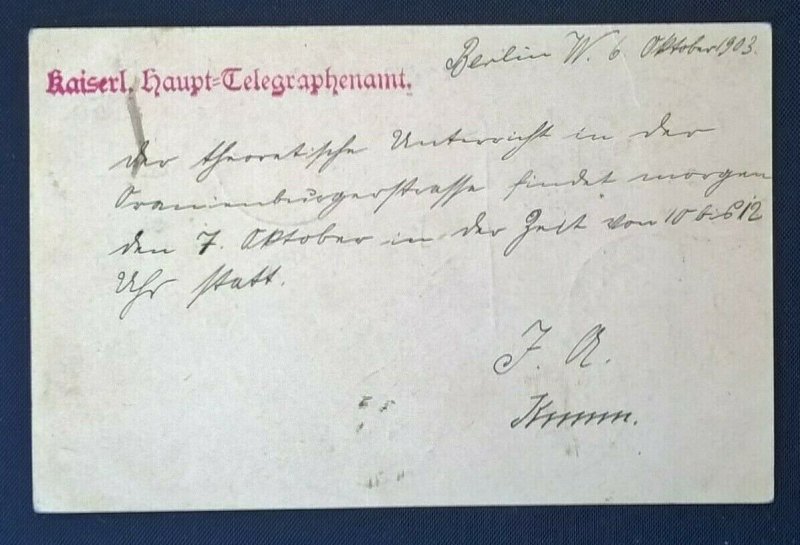 Berlin W. 6 Oktober 1903.
Kaiserl. Haupt-Telegraphenamt.
Der theoretische Unterricht in der
Oranienburgerstrasse findet morgen
den 7. Oktober in der Zeit von 10 bis 12
Uhr statt.
J. A.